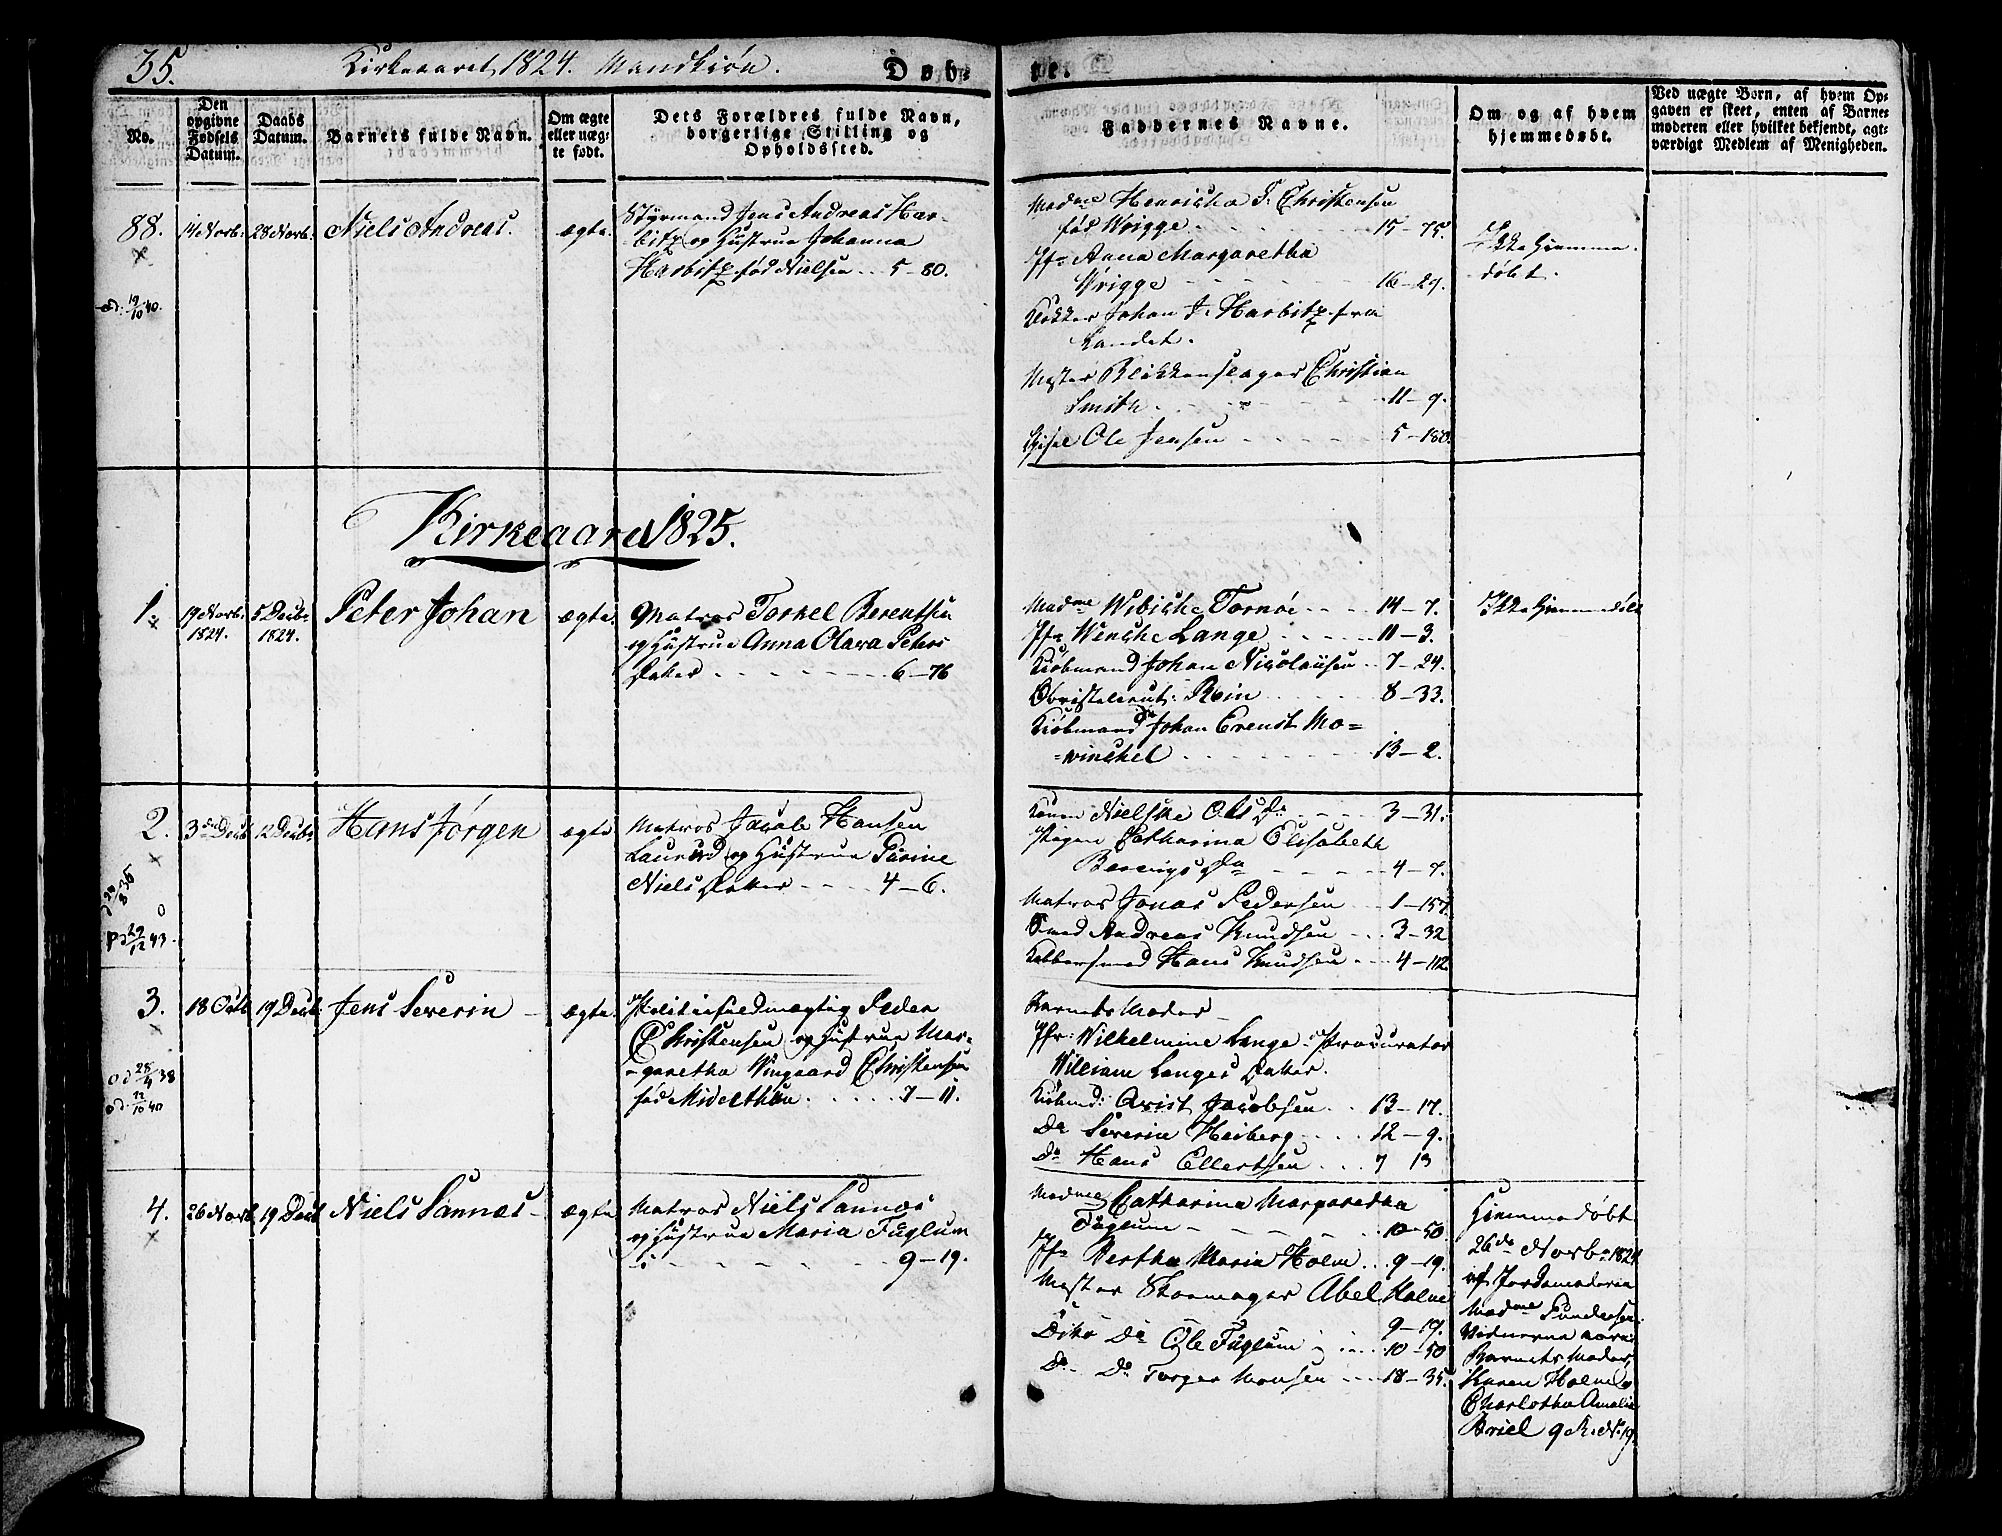 35.
Kirkeaaret 1824. Mandkiøn.
Døbte.
No.
Den opgivne Fødsels Datum.
Daabs Datum.
Barnets fulde Navn.
Om ægte eller uægte født.
Dets Forældres fulde Navn, borgerlige Stilling og Opholdssted.
Faddernes Navne.
Om og af hvem hjemmedøbt.
Ved uægte Børn, af hvem Opgaven er skeet, enten af Barnemoderen eller hvilket bekjendt, agtværdigt Medlem af Menigheden.
88.
14 Novb:
28 Novb:
Niels Andreas.
ægte.
Styrmand Jens Andreas Har-
bitz og Hustrue Johanna
Harbitz fød Nielsen .. 5-80.
Madme Henricha F. Christensen
fød Wrigge 15-75.
Jfr Anna Margaretha
Wrigge 16-29.
Klokker Johan F. Harbitz fra
Landet.
Mester Blikkenslager Christian
Smith 11-9.
Ole Jensen 5-180.
Ikke Hiemme-
døbt.
19/10 40.
Kirkeaaret 1825.
1.
19 Novb:
1824.
5 Decbr
1824.
Peter Johan
ægte.
Matros Torkel Berentsen
og Hustrue Anna Olava Peters
Datter 6-76
Madme Wibiche Tornøe 14-7.
Jfr Wenche Lange 11-3.
Kiøbmand Johan Nicolaisen .. 7-24.
Obristleieut: Rein 8-33.
Kiøbmand Johan Ernst Mo=
=winckel 13-2.
Ikke Hiemmedøbt
2.
3 Decb
12 Decbr
Hans Jørgen
ægte
Matros Jacob Hansen
Laurvd og Hustrue Serine
Niels Datter 4-6.
Konen Nielske Ols Dr 3-31.
Pigen Catharina Elisabeth
Berings Da 4-7.
Matros Jonas Pedersen 1-157
Smed Andreas Knudsen 3-32
Kobbersmed Hans Knudsen 4-112
29/12 43.
3.
18 Octb
19 Decb:
Jens Severin
ægte.
Politiefuldmægtig Peder
Christensen og Hustrue Mar=
-garetha Wingaard Christensen
fød Midelthon 7-11.
Barnets Moder
Jfr: Wilhelmine Lange. Procurator
William Langes Datter.
Kiøbmd: Qvist Jacobsen .. 13-17.
Do Severin Heiberg 12-9.
Do Hans Ellertsen 7 13
25/4 38
12/10 40
4.
26 Novb
19 Decb
Niels Sannes
ægte
Matros Niels Sannes
og Hustrue Maria Fuglum
9-19.
Madme Catharina Margaretha
Fuglum 10-50.
Jfr Bertha Maria Holm .. 9-19.
Mester Skoemager Abel Holm
9-19.
Dito Do Ole Fuglum 10-50
Do Do Torger Monsen 18-35.
Hiemmedøbt
26de Novbr 1824
af Jordemoderen
Madme Gundersen.
Vidnerne vare
Barnets Moder,
Karen Holm og
Charlotha Amalia
Briel 9 R. No 19.